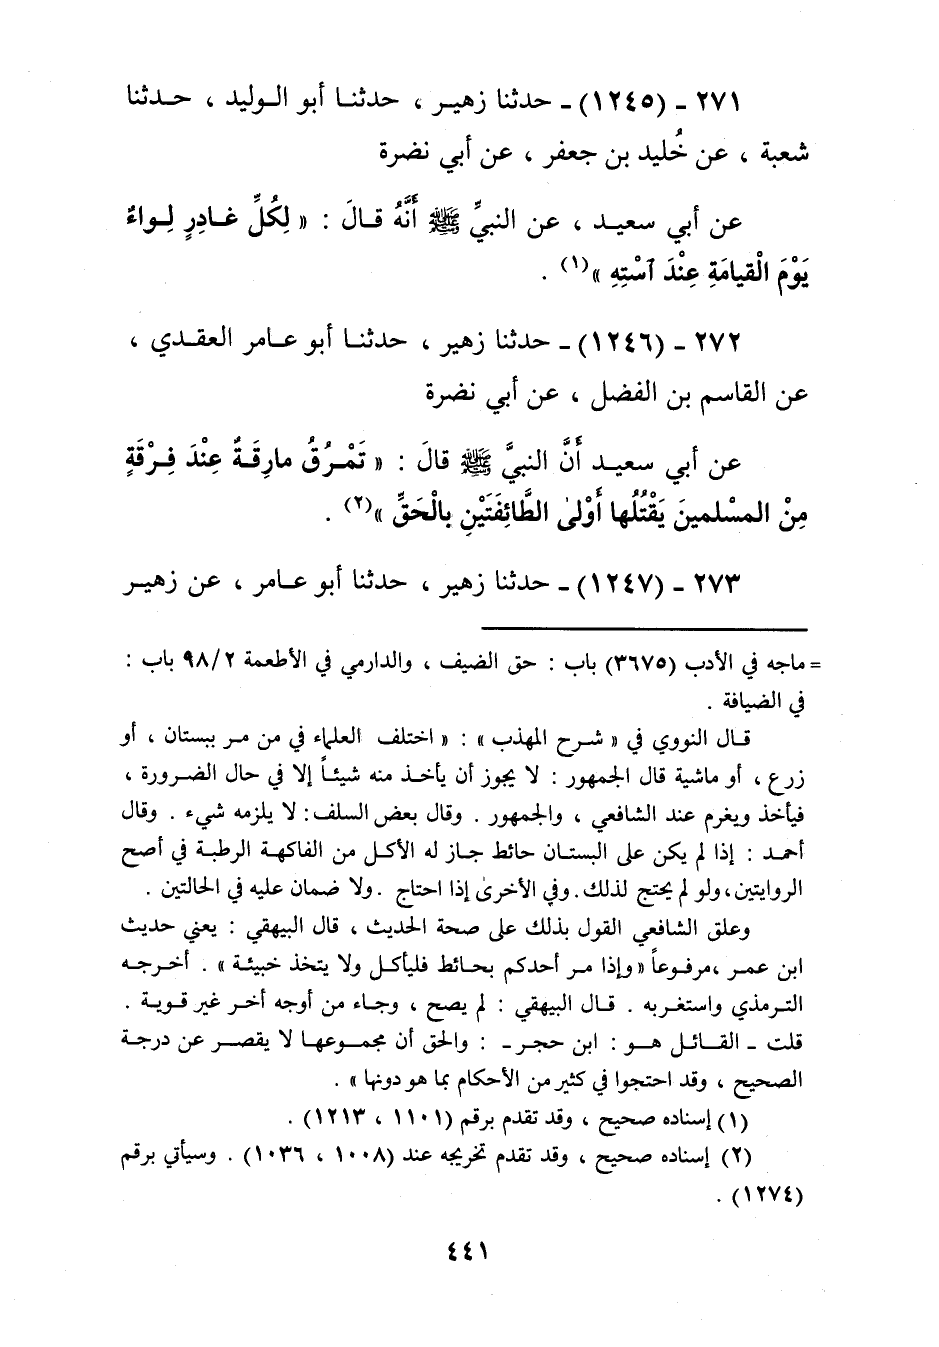 ٢٧١ - (١٢٤٥) - حدثنا زهير ، حدثنا أبو الوليد ، حدثنا
شعبة ، عن خُليد بن جعفر ، عن أبي نضرة
عن أبي سعيد ، عن النبيِّ ﷺ أَنَّهُ قالَ : « لِكُلِّ غادِرٍ لِواءٌ
يَوْمَ الْقيامَةِ عِنْدَ آسْتِهِ »(١) .
٢٧٢ - (١٢٤٦) - حدثنا زهير ، حدثنا أبو عامر العقدي ،
عن القاسم بن الفضل ، عن أبي نضرة
عن أبي سعيد أَنَّ النبيَّ ﷺ قالَ : « تَمْرُقُ مارِقَةٌ عِنْدَ فِرْقَةٍ
مِنْ المسْلمينَ يَقْتُلُها أَوْلىٰ الطَّائِفَتَيْنِ بالْحَقِّ »(٢) .
٢٧٣ - (١٢٤٧) - حدثنا زهير ، حدثنا أبو عامر ، عن زهير
= ماجه في الأدب (٣٦٧٥) باب : حق الضيف ، والدارمي في الأطعمة ٩٨/٢ باب :
في الضيافة .
قال النووي في « شرح المهذب » : « اختلف العلماء في من مر ببستان ، أو
زرع ، أو ماشية قال الجمهور : لا يجوز أن يأخذ منه شيئاً إلا في حال الضرورة ،
فيأخذ ويغرم عند الشافعي ، والجمهور . وقال بعض السلف : لا يلزمه شيء . وقال
أحمد : إذا لم يكن على البستان حائط جاز له الأكل من الفاكهة الرطبة في أصح
الروايتين، ولو لم يحتج لذلك. وفي الأخرىٰ إذا احتاج . ولا ضمان عليه في الحالتين .
وعلق الشافعي القول بذلك على صحة الحديث ، قال البيهقي : يعني حديث
ابن عمر ،مرفوعاً « وإذا مر أحدكم بحائط فليأكل ولا يتخذ خبيئة » . أخرجه
الترمذي واستغربه . قال البيهقي : لم يصح ، وجاء من أوجه أخر غير قوية .
قلت - القائل هو : ابن حجر - : والحق أن مجموعها لا يقصر عن درجة
الصحيح ، وقد احتجوا في كثير من الأحكام بما هو دونها » .
(١) إسناده صحيح ، وقد تقدم برقم (١١٠١ ، ١٢١٣) .
(٢) إسناده صحيح ، وقد تقدم تخريجه عند (١٠٠٨ ، ١٠٣٦) . وسيأتي برقم
(١٢٧٤) .
٤٤١